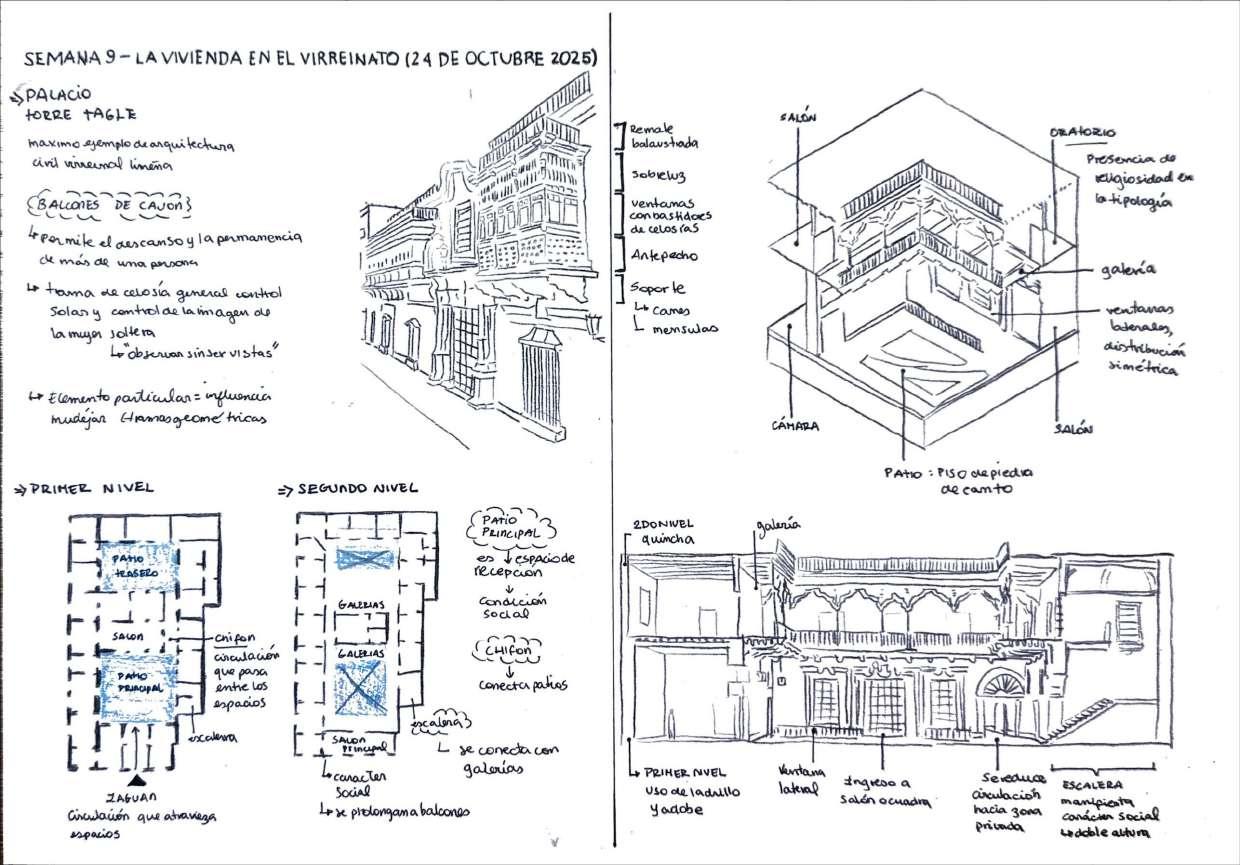 SEMANA 9 - LA VIVIENDA EN EL VIRREINATO (24 DE OCTUBRE 2025)
PALACIO
TORRE TAGLE
maximo ejemplo de arquitectura
civil virreinal limeña
BALCONES DE CAJON
permite el descanso y la permanencia
de más de una persona
trama de celosía general control
solar y control de la imagen de
la mujer soltera
"observar sin ser vistas"
Elemento particular = influencia
mudéjar tramas geométricas
Remate
balaustrada
sobreluz
ventanas
con bastidores
de celosías
Antepecho
Soporte
canes
mensulas
SALÓN
ORATORIO
Presencia de
religiosidad en
la tipología
galería
ventanas
laterales,
distribución
simétrica
CÁMARA
SALÓN
PATIO : PISO de piedra
de canto
PRIMER NIVEL
PATIO
TRASERO
SALON
PATIO
PRINCIPAL
chifon
circulación
que pasa
entre los
espacios
escalera
ZAGUAN
Circulación que atraviesa
espacios
SEGUNDO NIVEL
GALERIAS
GALERIAS
SALON
PRINCIPAL
caracter
social
se prolongan a balcones
escalera
se conecta con
galerías
PATIO
PRINCIPAL
es espacio de
recepcion
condición
social
CHIFON
conecta patios
2DO NIVEL
quincha
galería
PRIMER NIVEL
uso de ladrillo
y adobe
Ventana
lateral
Ingreso a
salón o cuadra
Se reduce
circulación
hacia zona
privada
ESCALERA
manifiesta
carácter social
doble altura